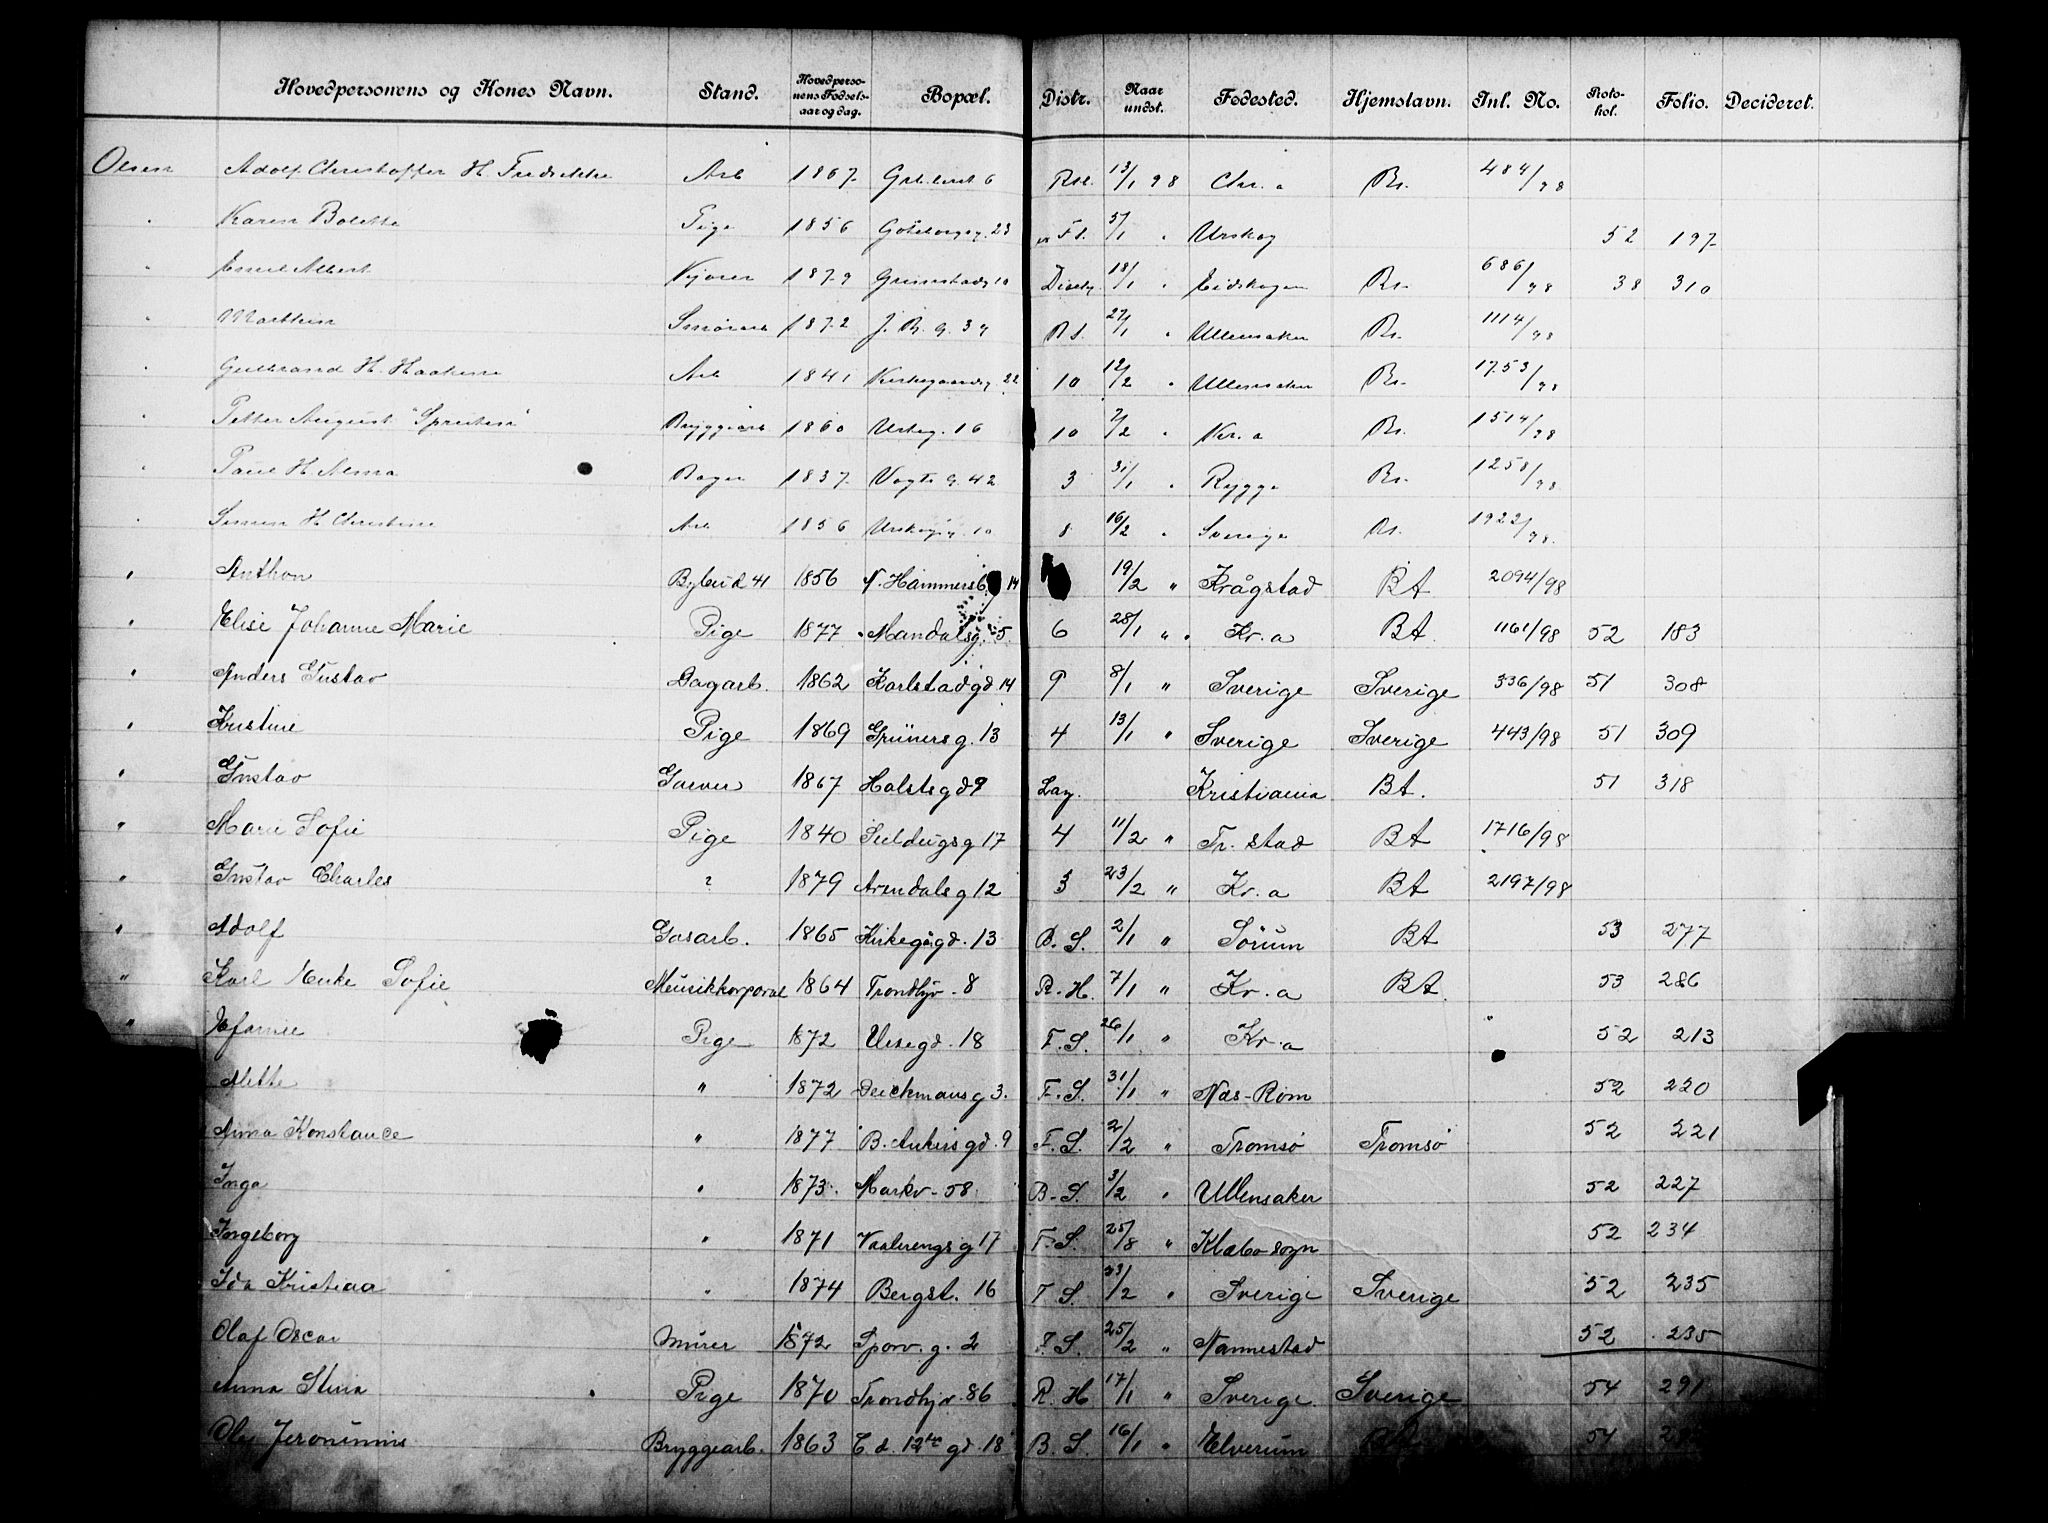 Hovedpersonens og Kones Navn. Stand. Hovedpersonens Fødselsaar og dag. Bopæl. Distr. Naar undst. Fødested. Hjemstavn. Inl. No. Protokol. Folio. Decideret.
Olsen Adolf Christoffer H. Fredrikke Arb 1867 6 13/1 98 Chr.a Bt. 484/98
" Karen Bolette Pige 1856 Göteborgg. 23 F.S. 5/1 " Urskog 52 197
" Emil Albert Visergut 1879 Grimstadg 10 18/1 " Eidskogen Bt. 686/98 38 310
" Marthin 1872 J. B. G. 39 R S. 27/1 " Ullensaker Bt. 1114/98
" Gulbrand H. Haakine Arb 1841 Kirkegaardsg. 22 10 12/2 " Ullensaker Bt. 1753/98
" Petter August "Spruten" Bryggearb 1860 Urteg. 16 10 7/2 " Kr.a Bt. 1514/98
" Paul H. Alma Bager 1837 Vogts G. 42 3 31/1 " Rygge Bt. 1258/98
" Simen H. Christine Arb 1856 Urskogg. 10 8 16/2 " Sverige Bt. 1922/98
" Anthon Bybud 41 1856 N. Hammersb.g 14 19/2 " Krågstad BA 2094/98
" Elise Johanne Marie Pige 1877 Mandalsg. 5. 6 28/1 " Kr.a BA. 1161/98 52 183
" Anders Gustav Dagarb. 1862 Karlstadgd 14 9 8/1 " Sverige Sverige 336/98 51 308
" Kristine Pige 1869 Grünersg. 13 4 13/1 " Sverige Sverige 443/98 51 309
" Gustav Garver 1867 Holstsgd 9 Lag. Kristiania BA. 51 318
" Marie Sofie Pige 1840 17 4 11/2 " Fr. stad BA 1716/98
" Gustav Charles ? 1879 Arendalsg 12 3 23/2 " Kr.a BA 2197/98
" Adolf Gasarb. 1865 Kirkeggd. 13 B. S. 2/1 " Sørum BA 53 277
" Karl Sofie Musikkorporal 1864 Trondhjv. 8 R. H. 7/1 " Kr.a BA 53 286
" Pige 1872 18 F. S. 26/1 " Kr.a " 52 213
Mette " 1872 Deichmansg 3. F. S. 31/1 " Næs-Rom 52 220
Anna Konstance " 1877 B. Ankersgd. 9 F. S. 2/2 " Tromsø Tromsø 52 221
Inga " 1873. Markv. 58. B. S. 3/2 " Ullensaker 52 227
Ingeborg " 1871 Vaalerengsg 17 F. S. 25/8 " Klæbo sogn 52 234
Ida Kristiaa " 1874 Bergst. 16 F S. 23/2 " Sverige Sverige 52 235
Olaf Oscar Murer 1872 Sporv. g. 2 F. S. 25/2 " Nannestad 52 235
Anna Stina Pige 1870 Trondhjv. 86 R. H 17/1 " Sverige Sverige 54 291
Ole Jeronimus Bryggearb. 1863 C. d. 12te gd 18 B. S. 16/1 " Elverum 54